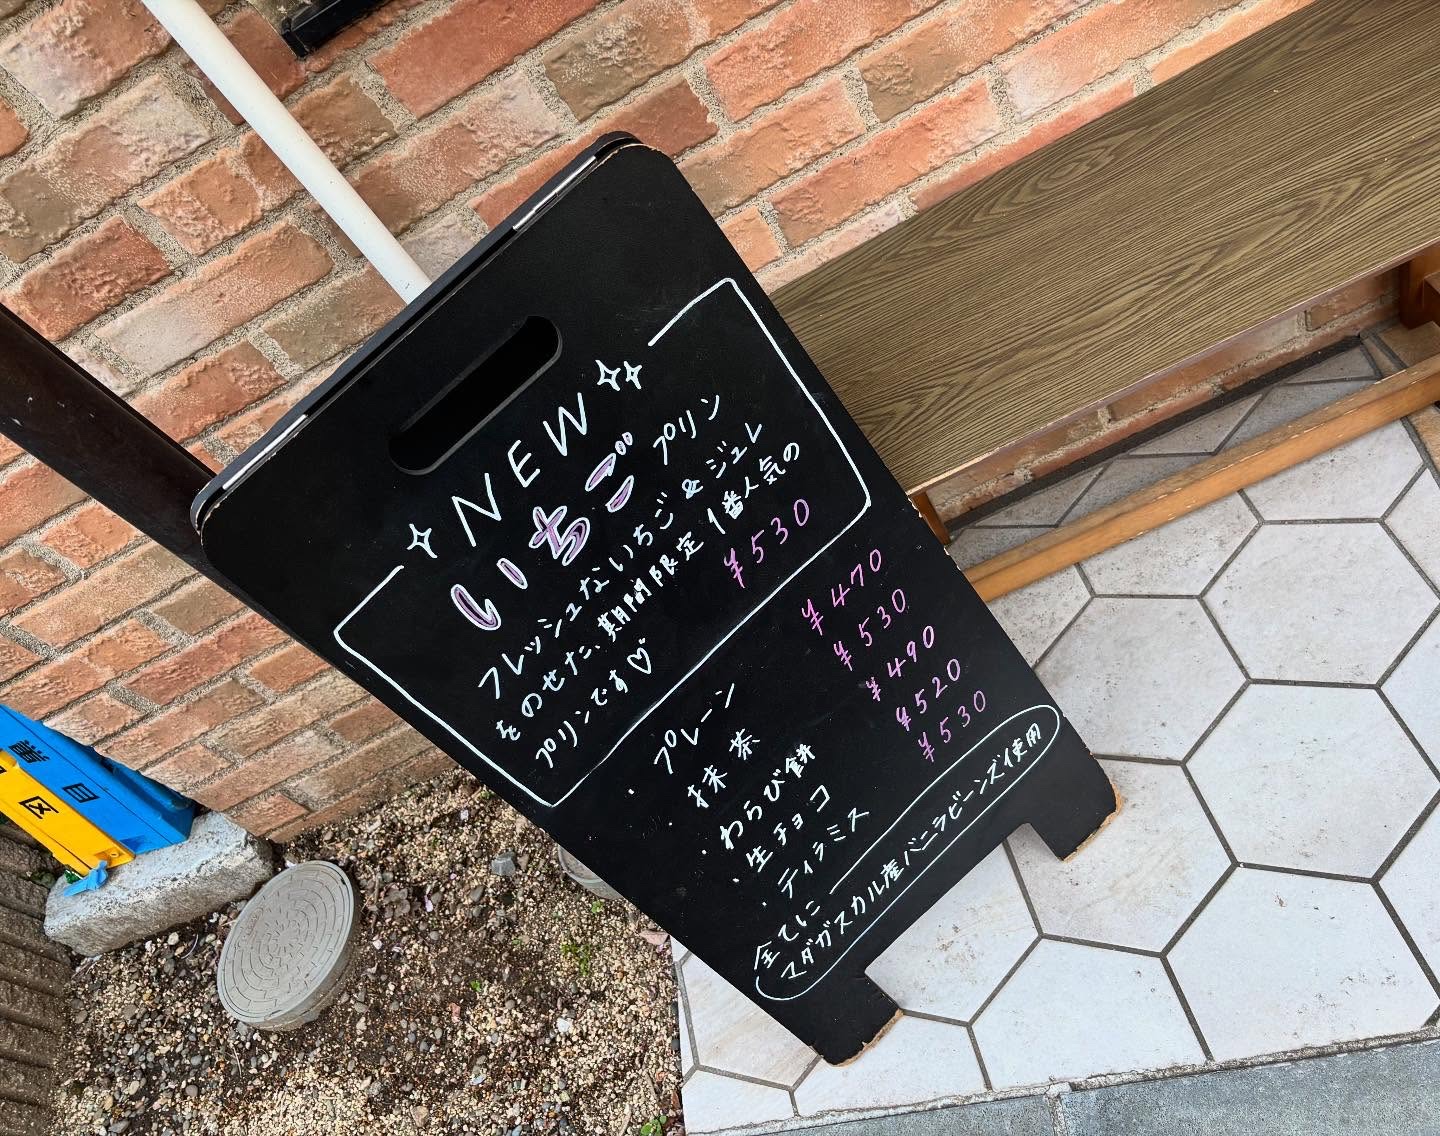 NEW
いちごプリン
フレッシュないちご&ジュレ
をのせた、期間限定 1番人気の
プリンです♡ ¥530
・プレーン ¥470
・抹茶 ¥530
・わらび餅 ¥490
・生チョコ ¥520
・ティラミス ¥530
全てに
マダガスカル産バニラビーンズ使用